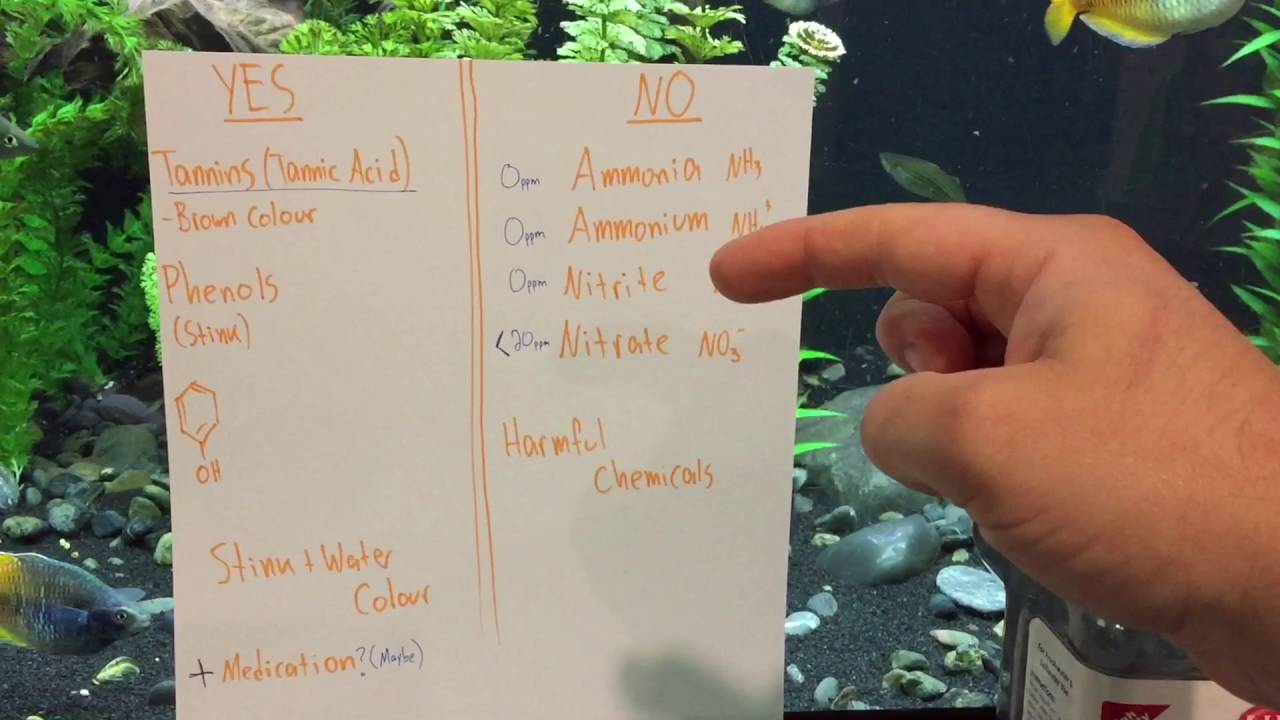 YES
Tannins (Tannic Acid)
-Brown Colour
Phenols
(Stink)
OH
Stink + Water
Colour
+ Medication? (Maybe)
NO
0ppm Ammonia NH3
0ppm Ammonium NH
0ppm Nitrite
<20ppm Nitrate NO3-
Harmful
Chemicals